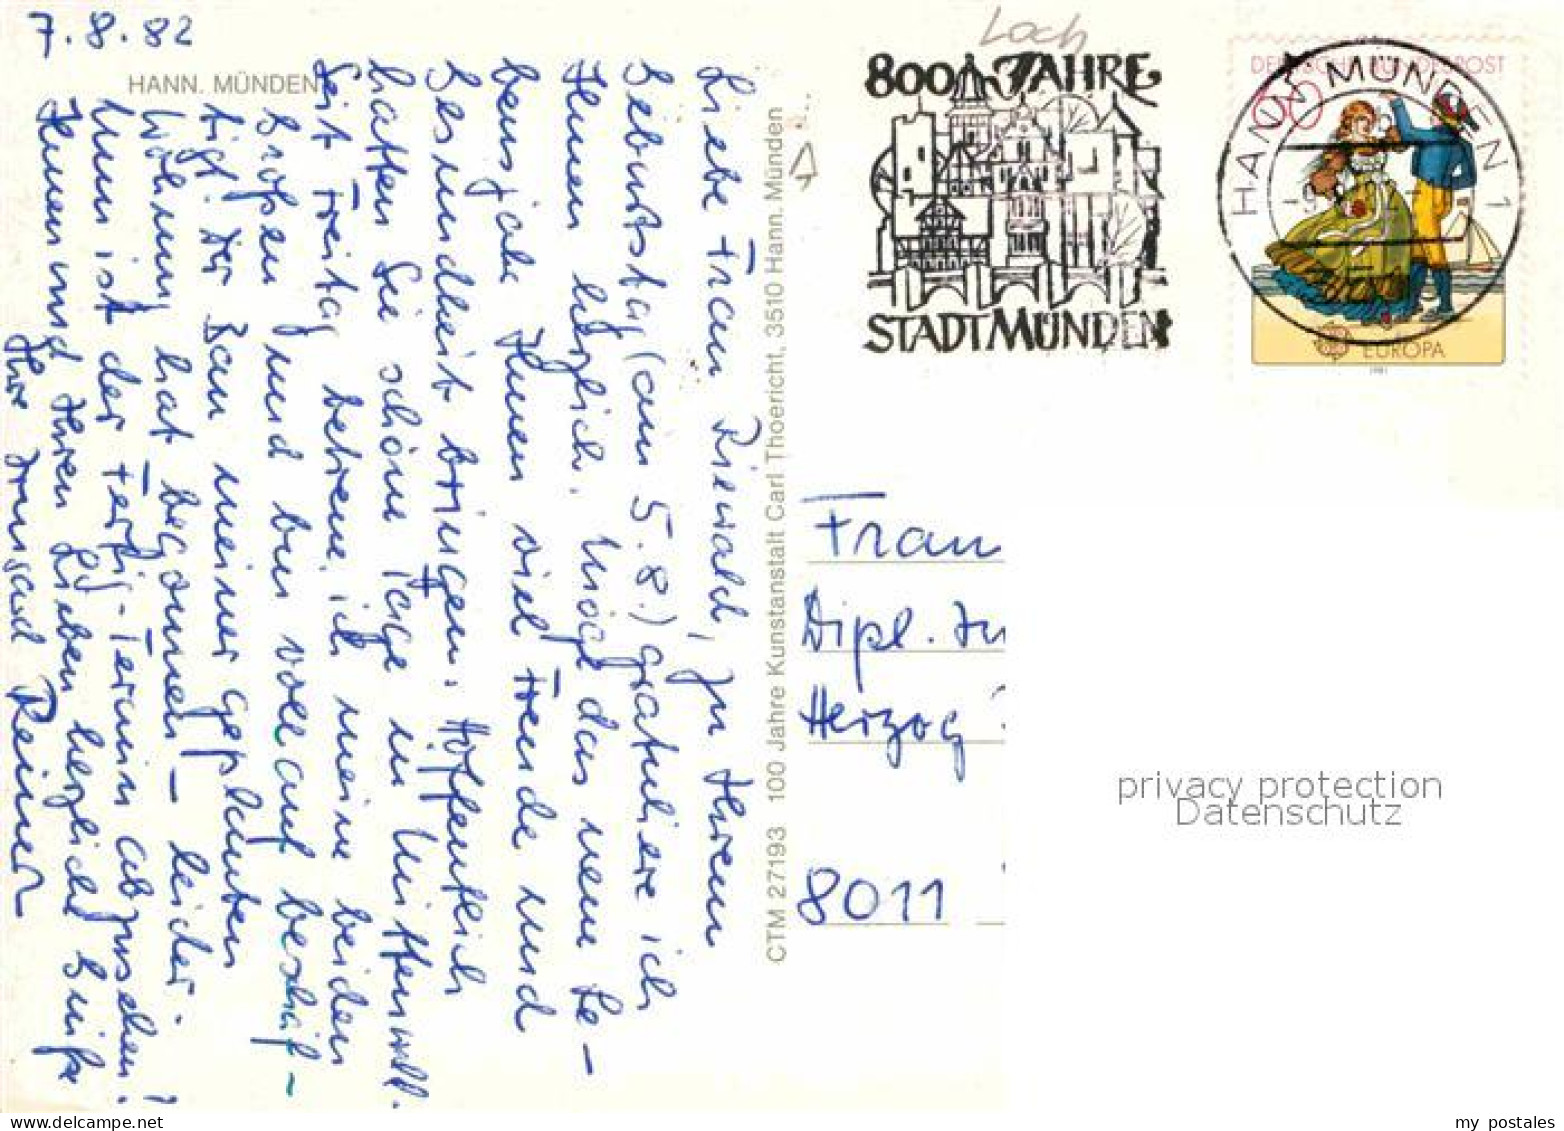 7.8.82
HANN. MÜNDEN
Liebe Frau Riewald, zu Ihrem
Geburtstag (am 5.8.) gratuliere ich
Ihnen herzlich. Möge das neue Le-
bensjahr Ihnen viel Freude und
Gesundheit bringen. Hoffentlich
hatten Sie schöne Tage in Mittenwald.
Seit Freitag betreue ich meine beiden
Großen und bin voll auf beschäf-
tigt. Der Bau meiner geplanten
Wohnung hat begonnen – leider.
Nun ist der Fertig-Termin abzusehen!
Ihnen und Ihren Lieben herzliche Grüße
Ihre Irmgard Reiner
CTM 27193 100 Jahre Kunstanstalt Carl Thoericht, 3510 Hann. Münden
Loch
800 JAHRE
STADT MÜNDEN
DEUTSCHE BUNDESPOST
60
HANN MÜNDEN 1
EUROPA
1981
Frau
Dipl. In
Herzog
8011
privacy protection
Datenschutz
my postales